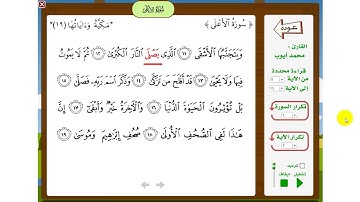 سُورَةُ الأَعْلَى
﴿ سُورَةُ الأَعْلَى ﴾
"مَكِيَّة وءَايَاتُهَا (١٩)"
وَيَتَجَنَّبُهَا الْأَشْقَى ﴿١١﴾ الَّذِي يَصْلَى النَّارَ الْكُبْرَى ﴿١٢﴾ ثُمَّ لَا يَمُوتُ
فِيهَا وَلَا يَحْيَى ﴿١٣﴾ قَدْ أَفْلَحَ مَن تَزَكَّى ﴿١٤﴾ وَذَكَرَ اسْمَ رَبِّهِ فَصَلَّى ﴿١٥﴾
بَلْ تُؤْثِرُونَ الْحَيَاةَ الدُّنْيَا ﴿١٦﴾ وَالْآخِرَةُ خَيْرٌ وَأَبْقَى ﴿١٧﴾ إِنَّ
هَذَا لَفِي الصُّحُفِ الْأُولَى ﴿١٨﴾ صُحُفِ إِبْرَاهِيمَ وَمُوسَى ﴿١٩﴾
عودة
القارئ :
محمد أيوب
قراءة محددة
من الآية :
إلى الآية :
تكرار السورة
تكرار الآية
ترديد
تشغيل
ايقاف